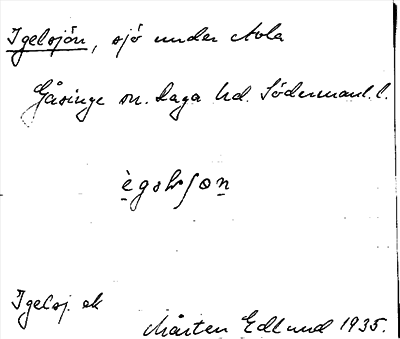 Igelsjön, sjö under Nola
Gåsinge sn. Daga hd. Södermanl. l.
Igelsj. ek
Mårten Edlund 1935.